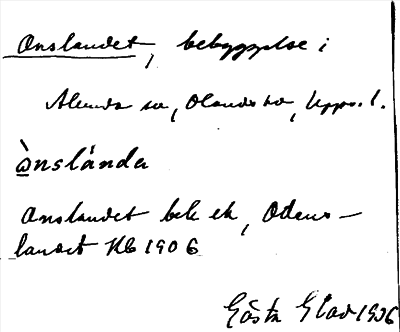 Onslandet, bebyggelse i
Alunda sn, Olands hd, Upps. l.
ò̲nslánda
Onslandet bek ek, Odens-
landet Hb 1906
Gösta Elav 1906